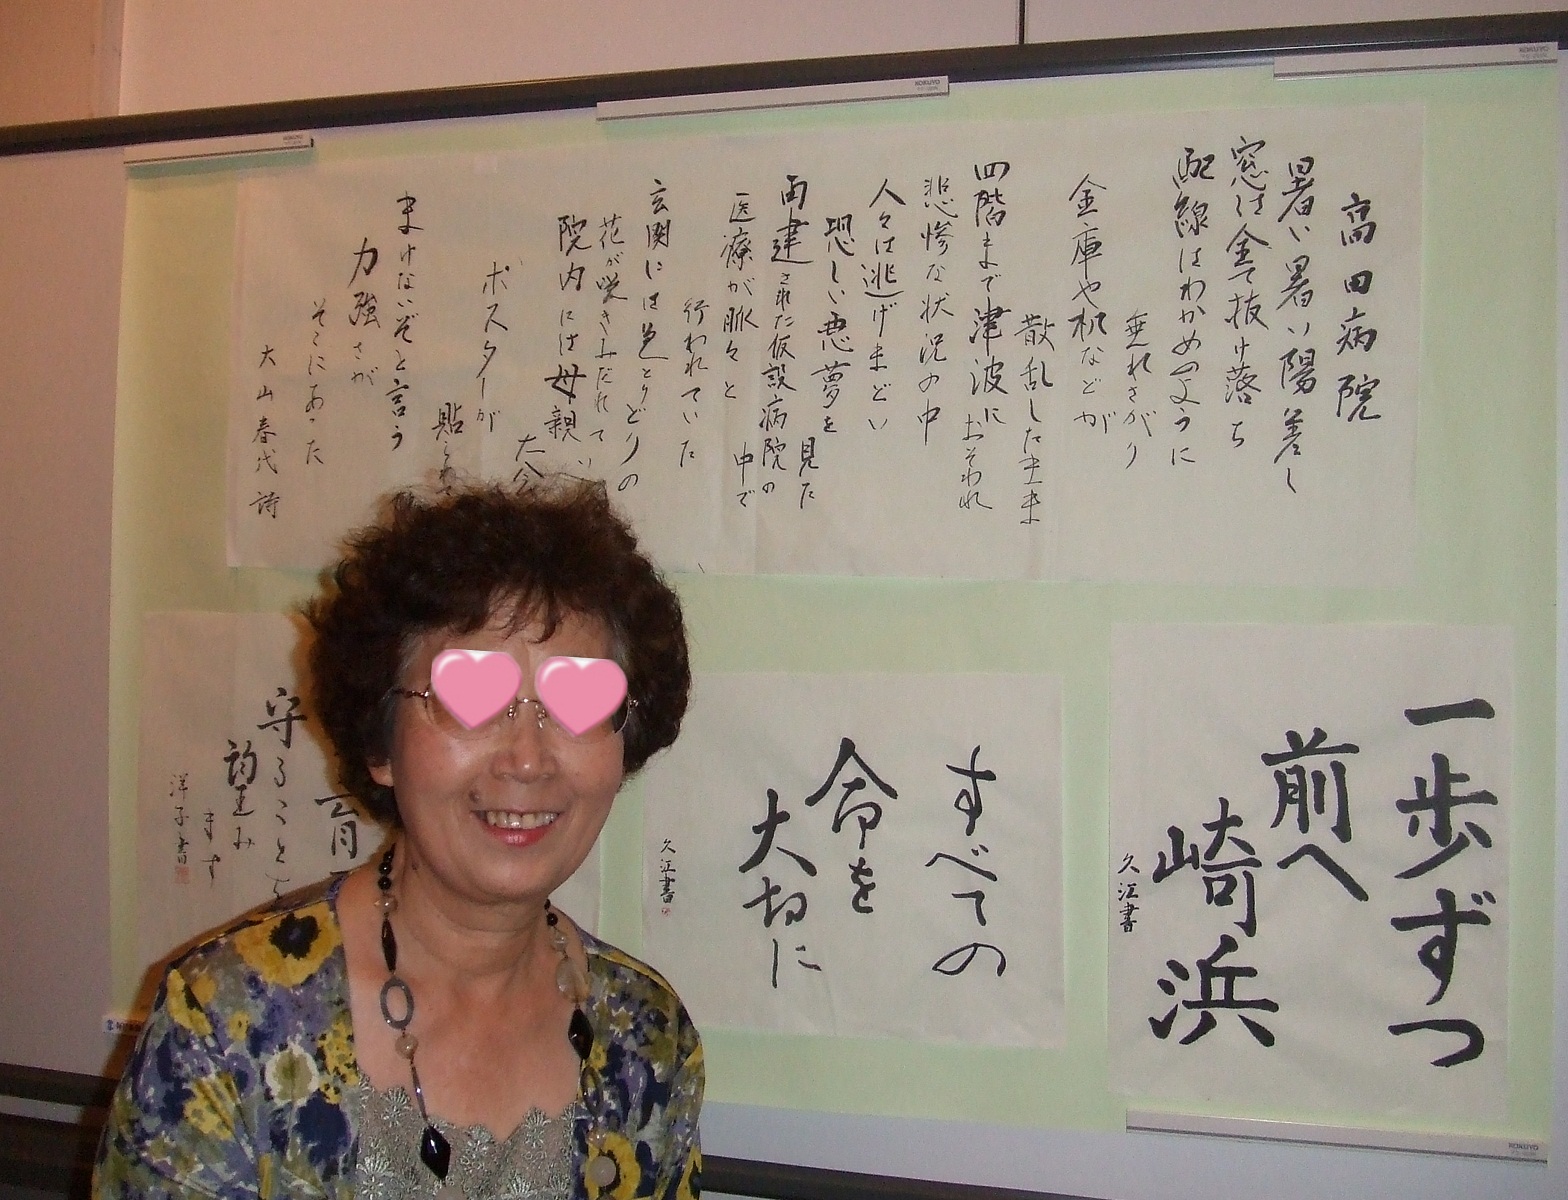 高田病院
暑い暑い陽差し
窓は全て抜け落ち
配線はわかめのように
垂れさがり
金庫や机などが
散乱したまま
四階まで津波におそわれ
悲惨な状況の中
人々は逃げまどい
恐しい悪夢を見た
再建された仮設病院の
中で
医療が脈々と
行われていた
玄関には色とりどりの
花が咲きみだれてい
院内には母親
大会
ポスターが
貼ら
まけないぞと言う
力強さが
そこにあった
大山春代詩
一歩ずつ
前へ
崎浜
久江書
すべての
命を
大切に
久江書
育
守ることを
望み
ます
洋子書
KOKUYO
KOKUYO
KOKUYO
KOKUYO